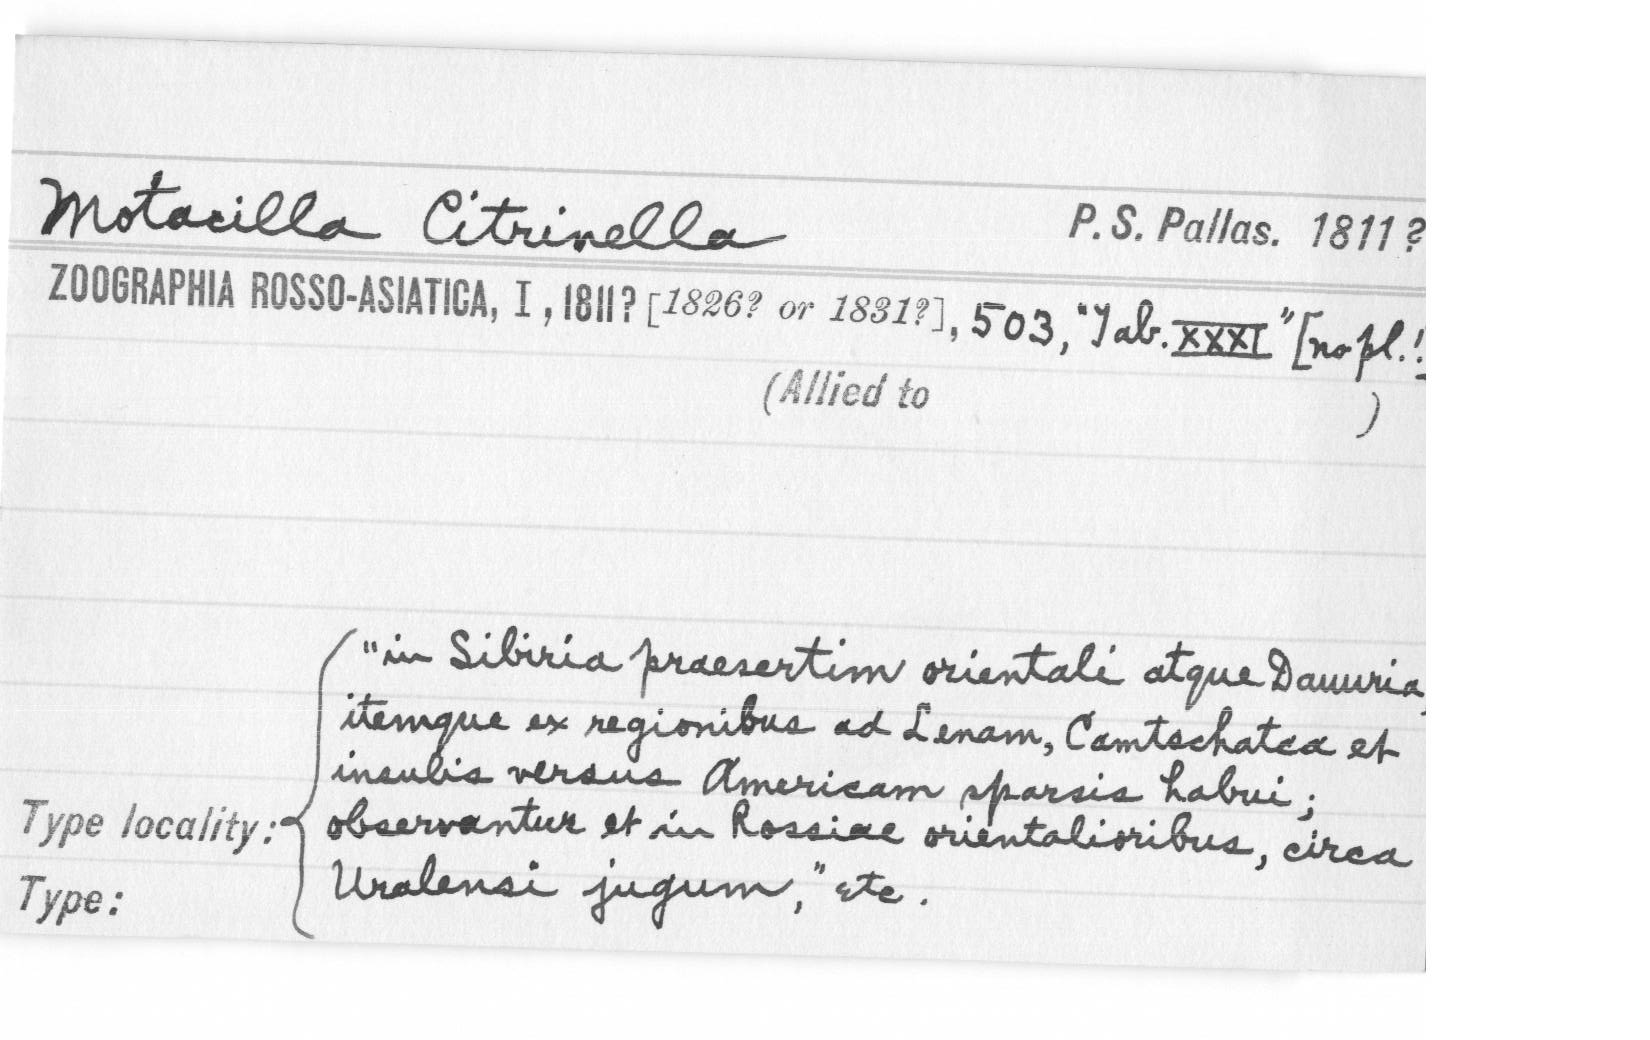 Motacilla Citrinella P. S. Pallas. 1811?
ZOOGRAPHIA ROSSO-ASIATICA, I, 1811? [1826? or 1831?], 503, "Tab. XXXI" [no pl.!
(Allied to )
"in Sibiria praesertim orientali atque Dauuria,
itemque ex regionibus ad Lenam, Camtschatca et
insulis versus Americam sparsis habui;
Type locality: observantur et in Rossiae orientalioribus, circa
Type: Uralensi jugum," etc.